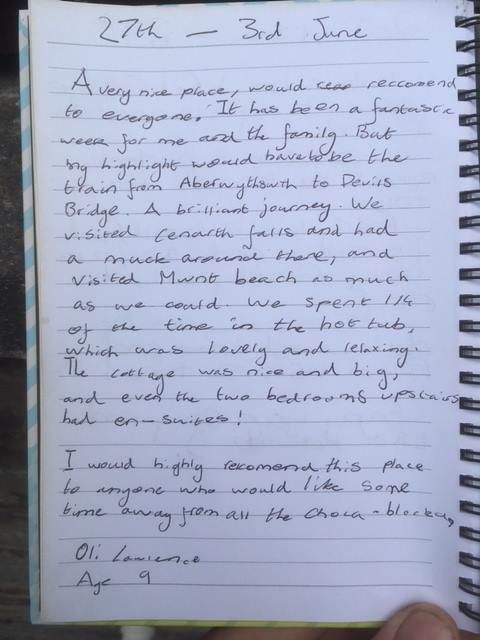 27th — 3rd June
A very nice place, would reccomend
to everyone. It has been a fantastic
week for me and the family. But
my highlight would have to be the
train from Aberwythswth to Devils
Bridge. A brilliant journey. We
visited Cenarth falls and had
a muck around there, and
visited Mwnt beach as much
as we could. We spent 1/4
of the time in the hot tub,
which was lovely and relaxing.
The cottage was nice and big,
and even the two bedrooms upstairs
had en-suites!
I would highly recomend this place
to anyone who would like some
time away from all the choca-blocky
Oli Lawrence
Age 9